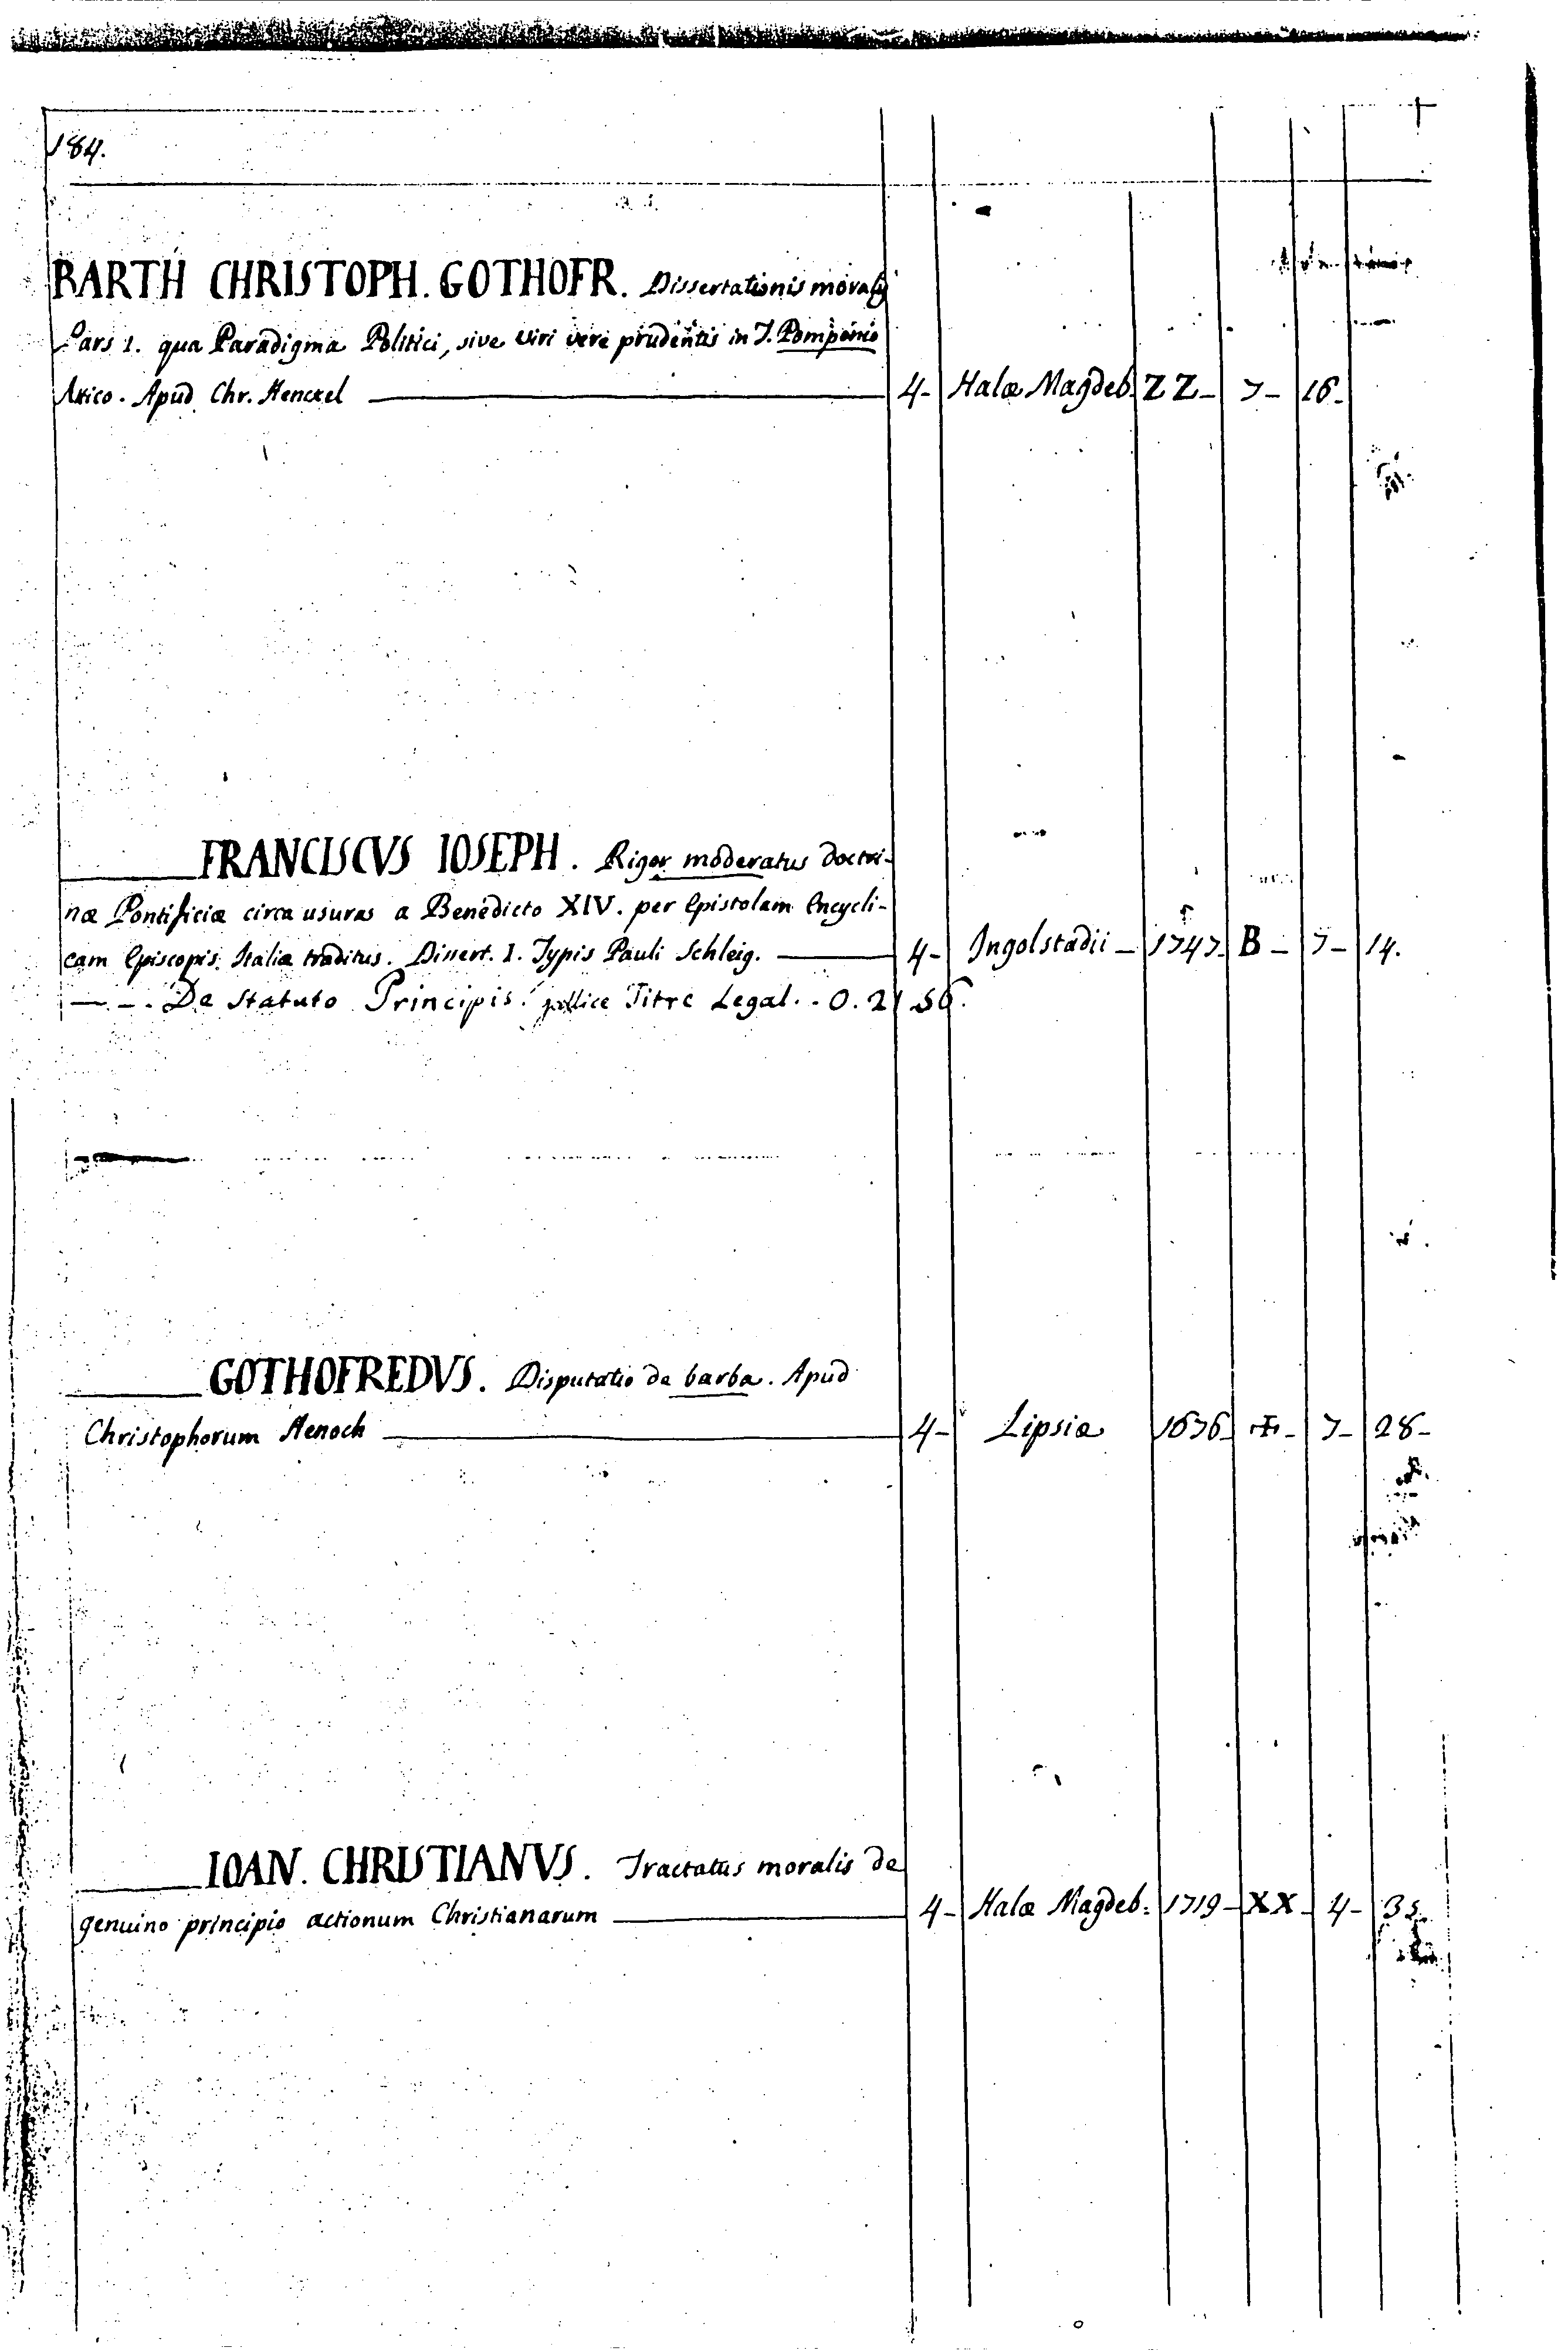 184.
BARTH CHRISTOPH. GOTHOFR. Dissertationis moralis
Pars 1. qua Paradigma Politici, sive viri vere prudentis in T. Pomponio
Attico. Apud Chr. Henckel — 4- Halæ Magdeb. ZZ- 7- 16-
FRANCISCVS IOSEPH. Rigor moderatus doctri-
næ Pontificiæ circa usuras a Benedicto XIV. per Epistolam Encycli-
cam Episcopis Italiæ traditus. Dissert. I. Typis Pauli Schleig. — 4- Ingolstadii - 1747- B - 7- 14.
— - . De Statuto Principis. Titre Legal. - O. 21 56.
GOTHOFREDVS. Disputatio de barba. Apud
Christophorum Henoch — 4- Lipsiæ 1676- ✠- 7- 28-
IOAN. CHRISTIANVS. Tractatus moralis de
genuino principio actionum Christianarum — 4- Halæ Magdeb. 1719- XX- 4- 35.